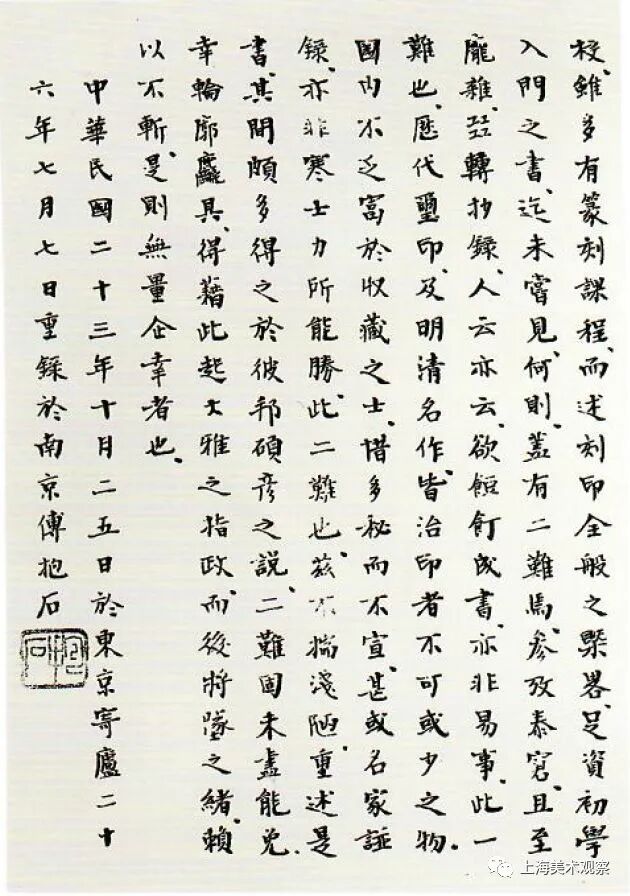 校、雖多有篆刻課程、而述刻印全般之槩畧、足資初學
入門之書、迄未嘗見、何則、蓋有二難焉、參攷泰窘、且至
龐雜、㠭轉抄錄、人云亦云、欲餖飣成書、亦非易事、此一
難也、歷代璽印、及明清名作、皆治印者不可或少之物、
國內不乏富於收藏之士、惜多秘而不宣、甚或名家
錄、亦非寒士力所能勝、此二難也、茲不揣淺陋、重述是
書、其間頗多得之於彼邦碩彥之説、二難固未盡能免、
幸輪廓麤具、得藉此起大雅之指政、而後將墜之緒、賴
以不斬、是則無量企幸者也、
中華民國二十三年十月二五日於東京寄廬二十
六年七月七日重錄於南京傅抱石
抱石
上海美术观察